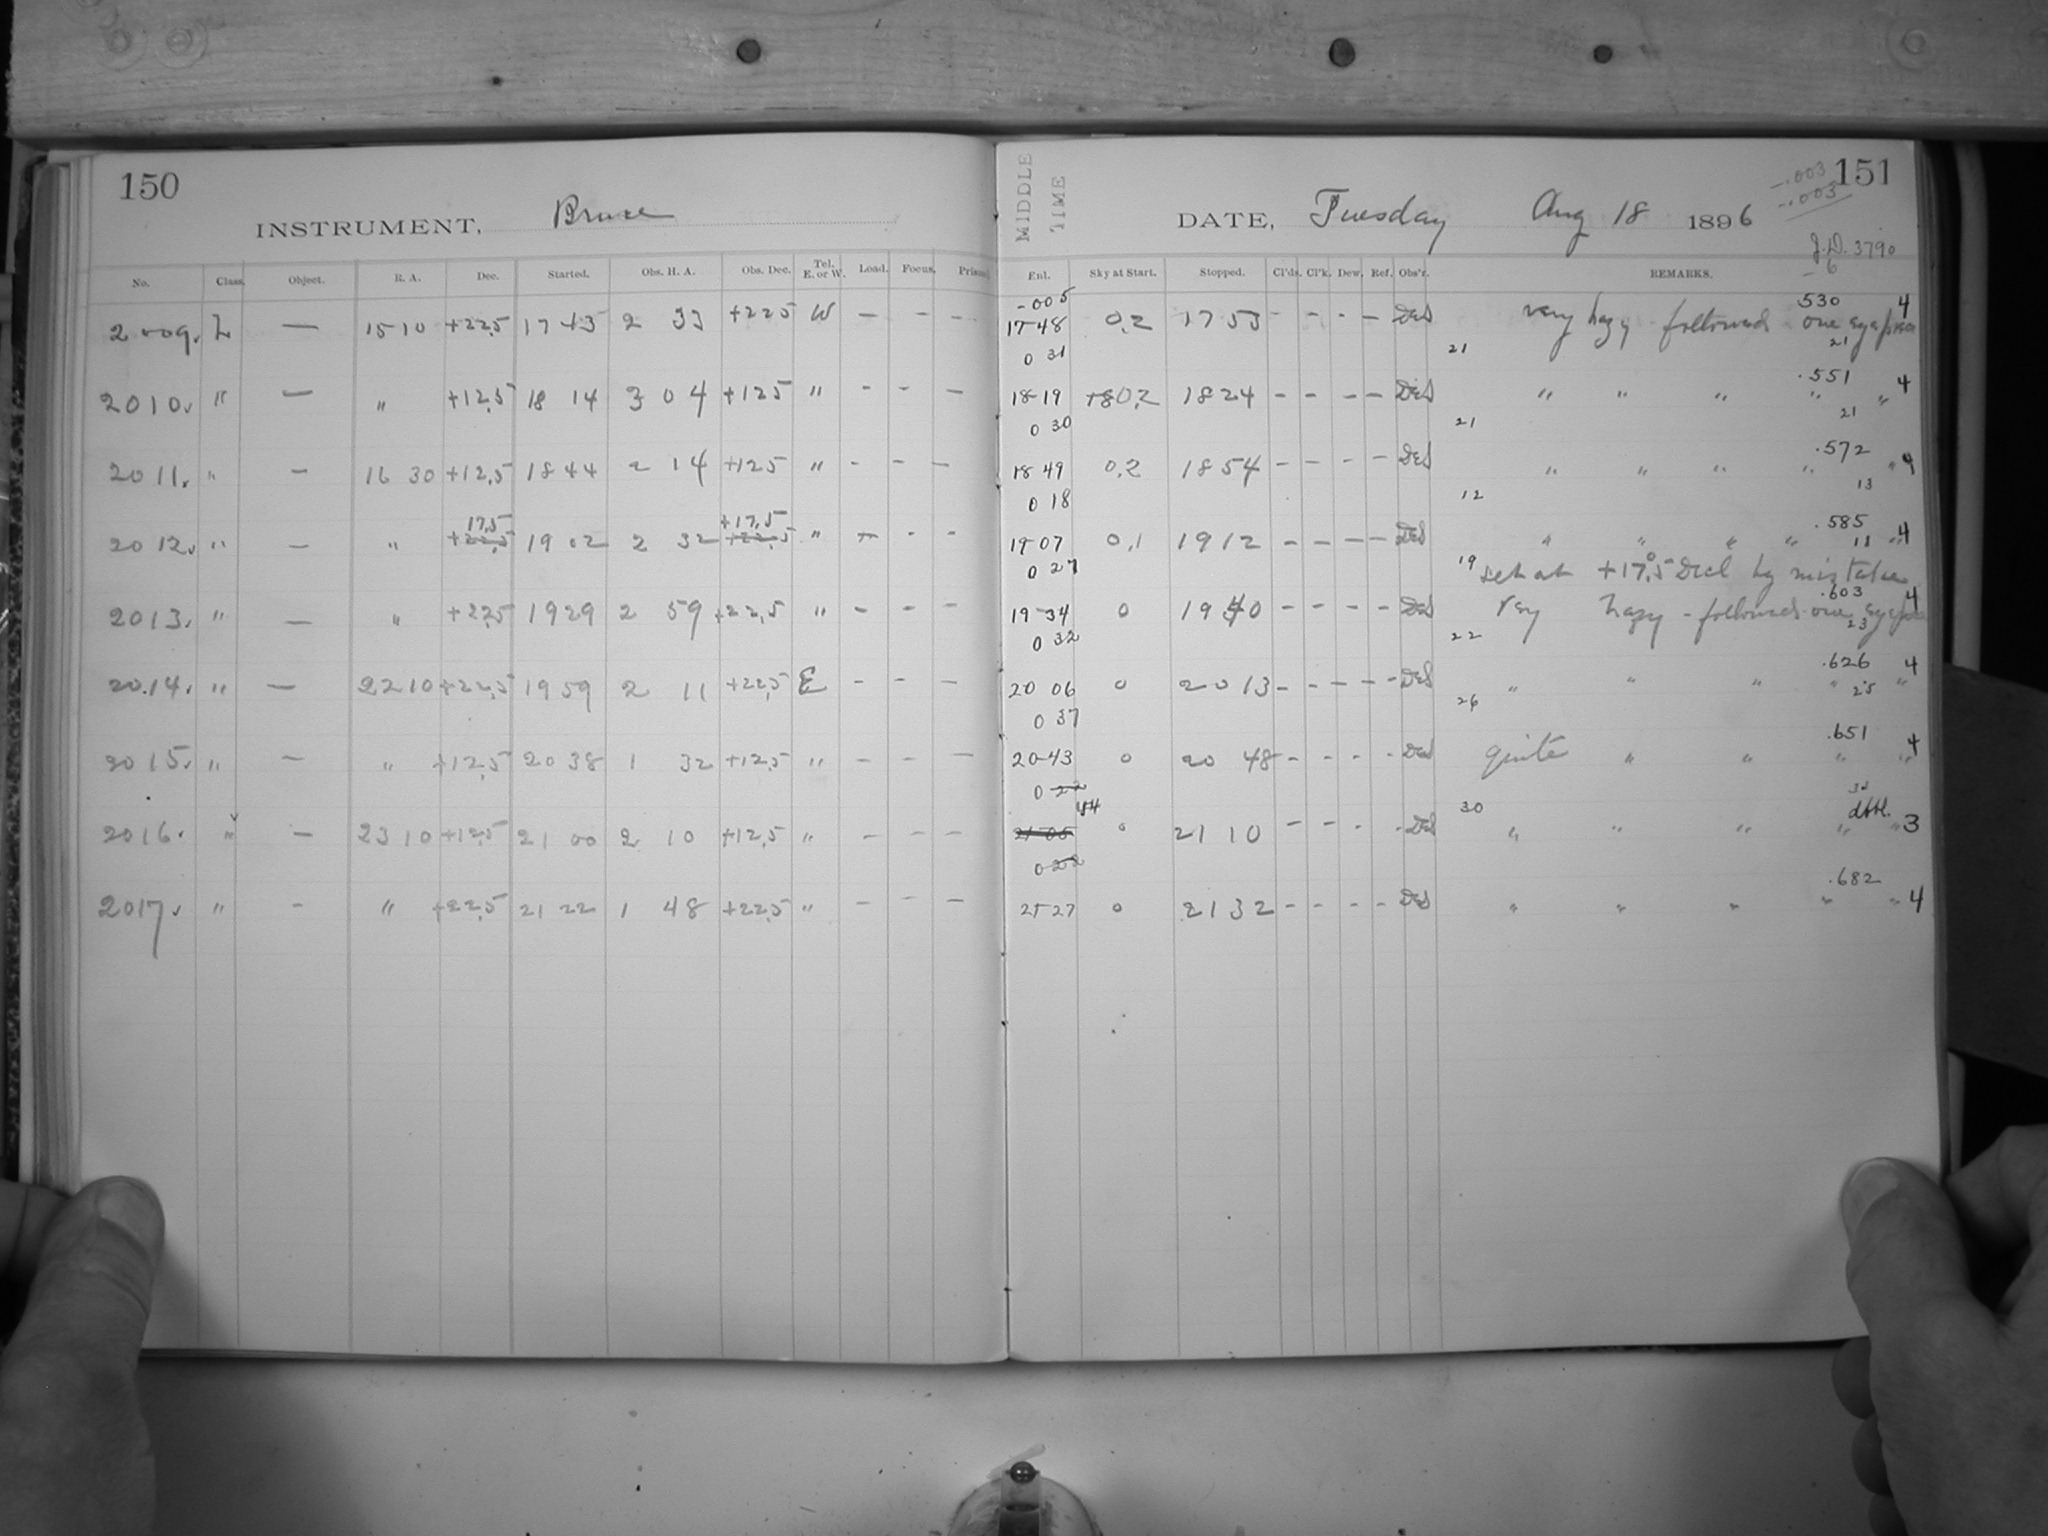 150
INSTRUMENT, Bruce
No. Class. Object. R. A. Dec. Started. Obs. H. A. Obs. Dec. Tel. E. or W. Load. Focus. Prism.
2009. L — 15 10 +22.5 17 43 2 33 +22.5 W — - —
2010. " — " +12.5 18 14 3 04 +12.5 " - - —
2011. " — 16 30 +12.5 18 44 2 14 +12.5 " - - —
17.5 +17.5
2012. " — " +22.5 19 02 2 32 +22.5 " — - -
2013. " — " +22.5 19 29 2 59 +22.5 " - - -
2014. " — 22 10 +22.5 19 59 2 11 +22.5 E - - -
2015. " — " +12.5 20 38 1 32 +12.5 " - - —
2016. " — 23 10 +12.5 21 00 2 10 +12.5 " - - —
2017. " - " +22.5 21 22 1 48 +22.5 " - - —
MIDDLE TIME
151
-.003
-.003
DATE, Tuesday Aug 18 1896
J.D. 3790
- 6
Enl. Sky at Start. Stopped. Cl'ds. Cl'k. Dew. Ref. Obs'r. REMARKS.
-005 .530 4
17-48 0.2 17 53 - - - — DES very hazy followed one eyepiece
0 31 21 21
.551 4
18-19 0.2 18 24 - - - — DES " " " " "
0 30 21 21
.572
18 49 0.2 18 54 - - - - DES " " " " " 4
0 18 12 13
.585
19-07 0.1 19 12 - - - — DES " " " " " 4
0 27 19 18
set at +17.5° Decl by mistake
.603 4
19-34 0 19 40 - - - - DES very hazy - followed one eyepiece
0 32 22 23
.626 4
20 06 0 20 13 - - - - DES " " " " "
0 37 26 25
.651 4
20-43 0 20 48 - - - - DES quite " " " "
0 22
44 30 dbtl.
21-05 0 21 10 - - - - DES " " " " " 3
0 22
.682
21-27 0 21 32 - - - - DES " " " " " 4